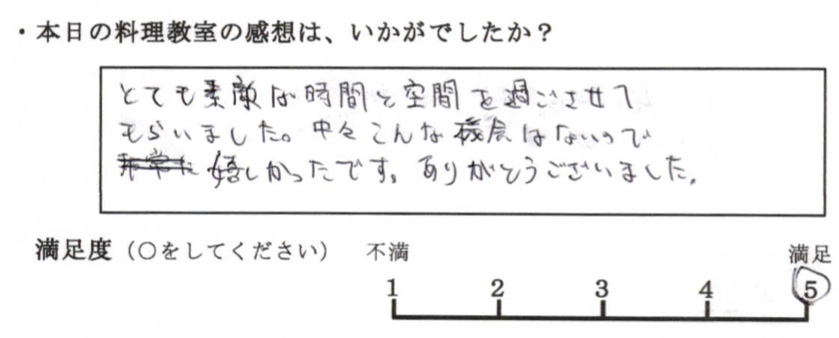 ・本日の料理教室の感想は、いかがでしたか？
とても素敵な時間と空間を過ごさせて
もらいました。中々こんな機会はないので
非常に嬉しかったです。ありがとうございました。
満足度（○をしてください） 不満 満足
1 2 3 4 5